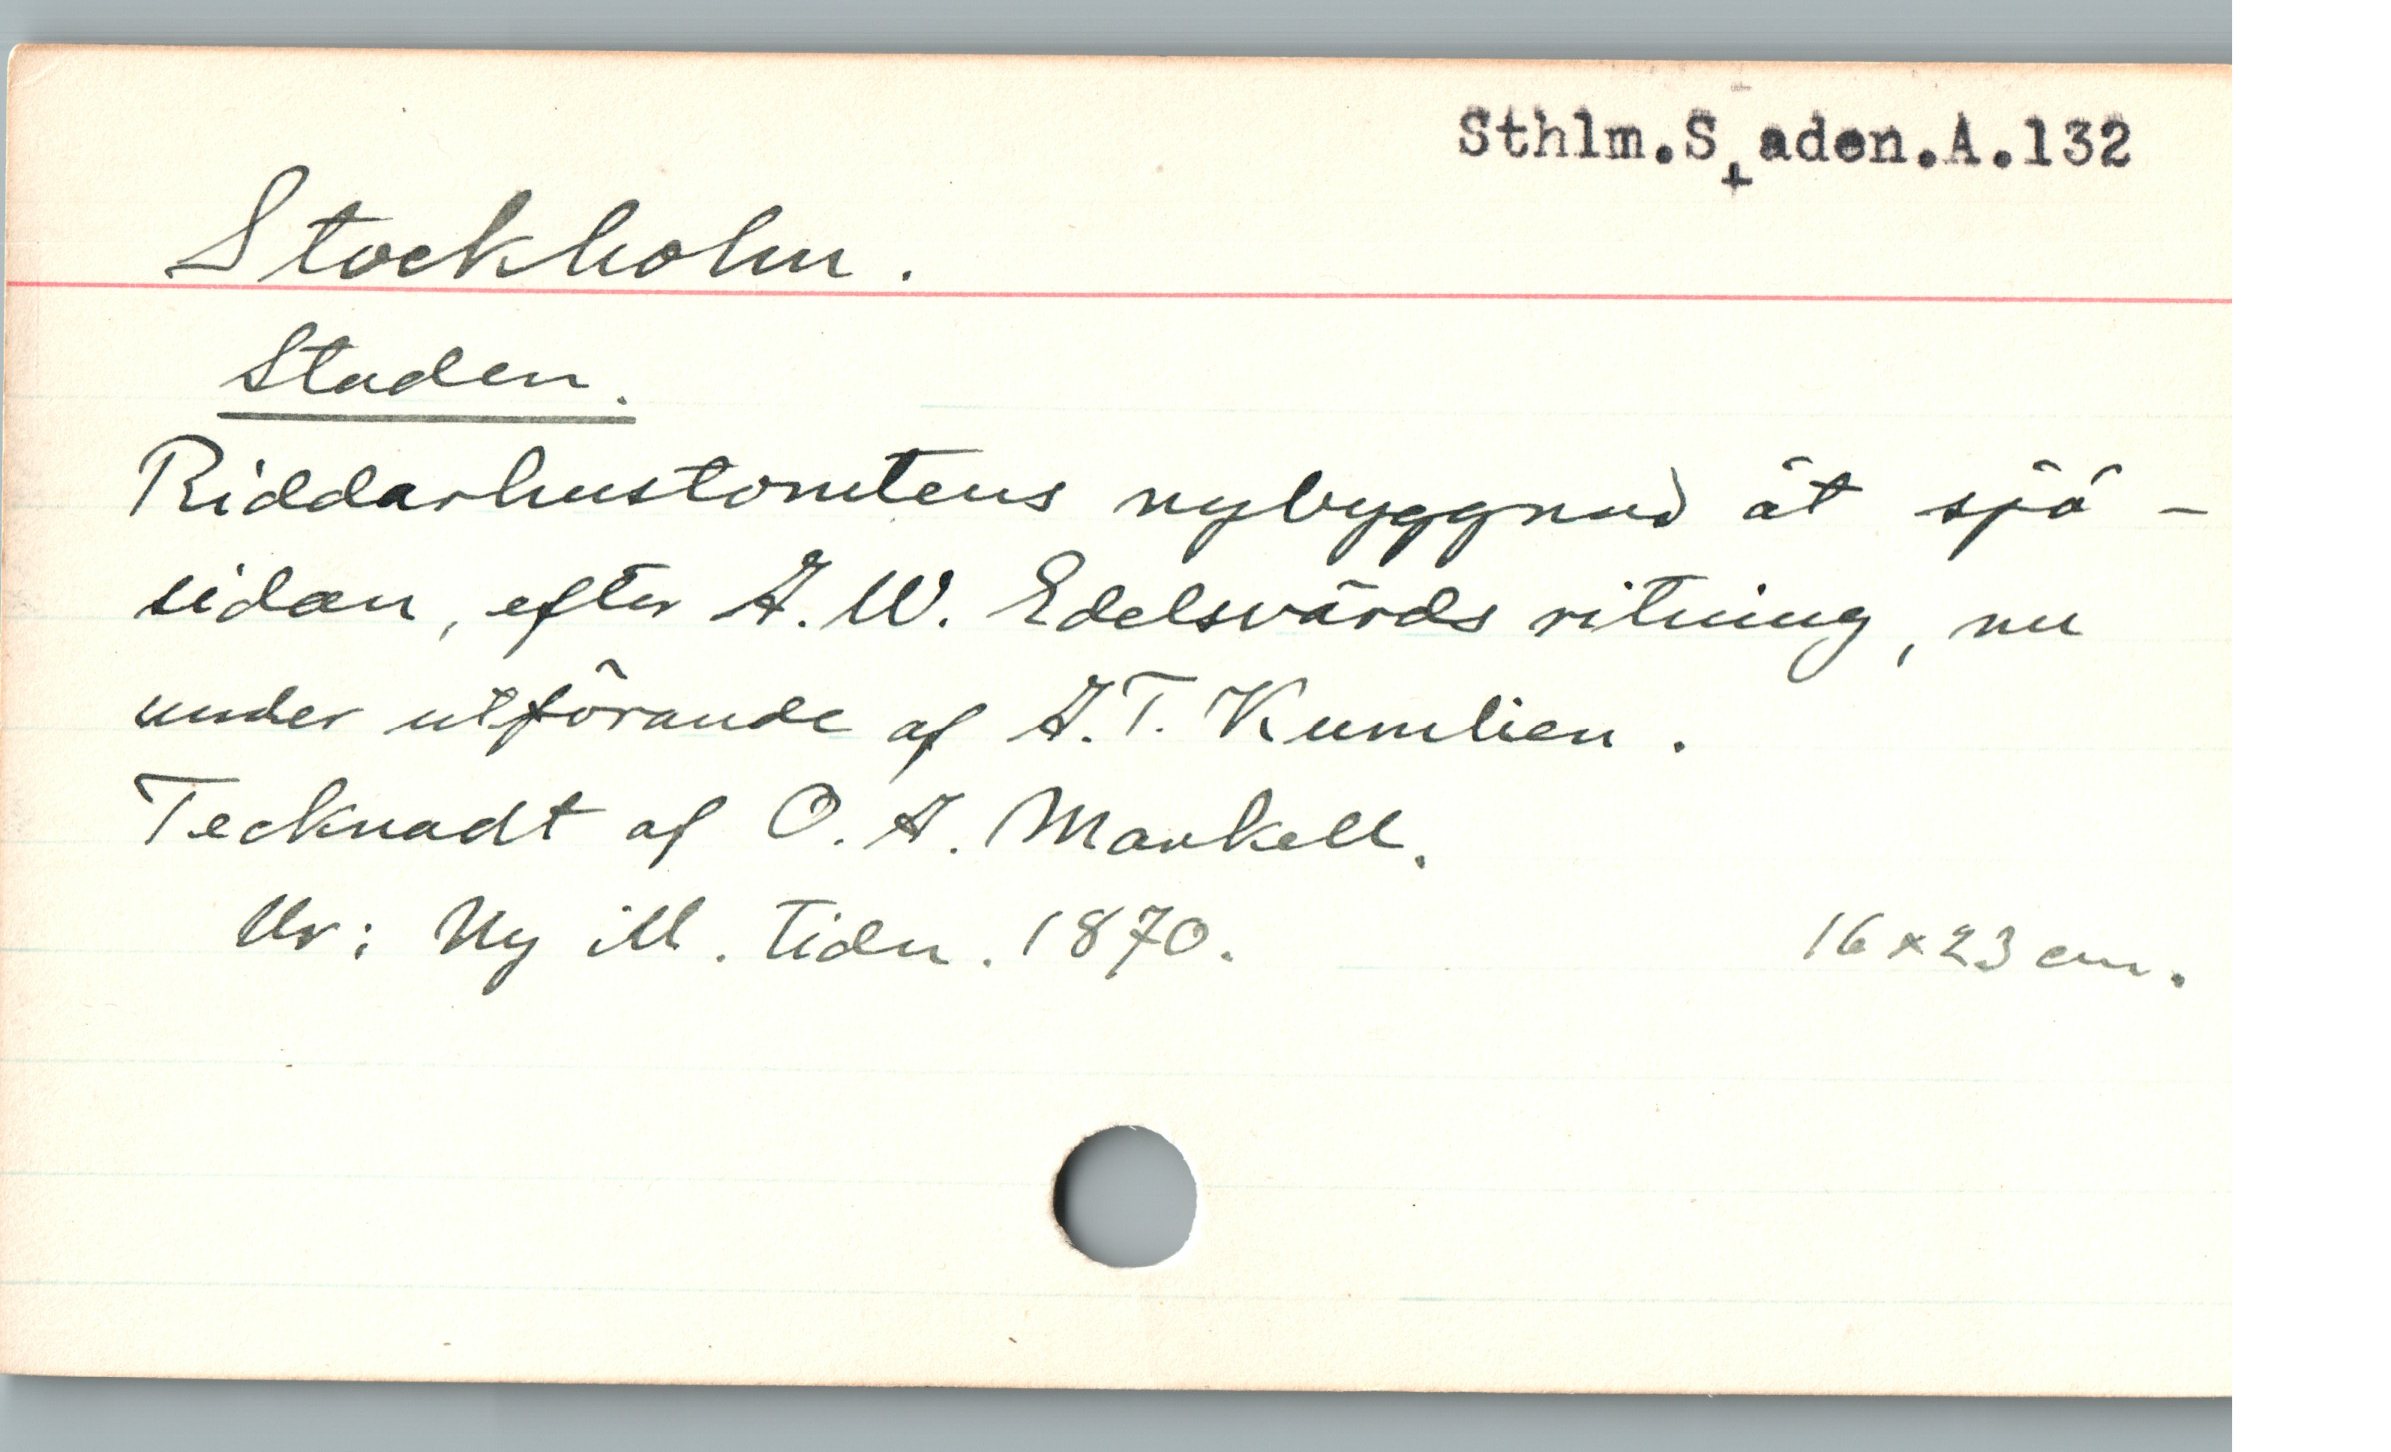 Sthlm.Staden.A.132
Stockholm.
Staden.
Riddarhustomtens nybyggnad åt sjö-
sidan, efter A. W. Edelsvärds ritning, nu
under utförande af A. T. Kumlien.
Tecknadt af O. A. Mankell.
Ur: Ny ill. Tidn. 1870. 16 x 23 cm.